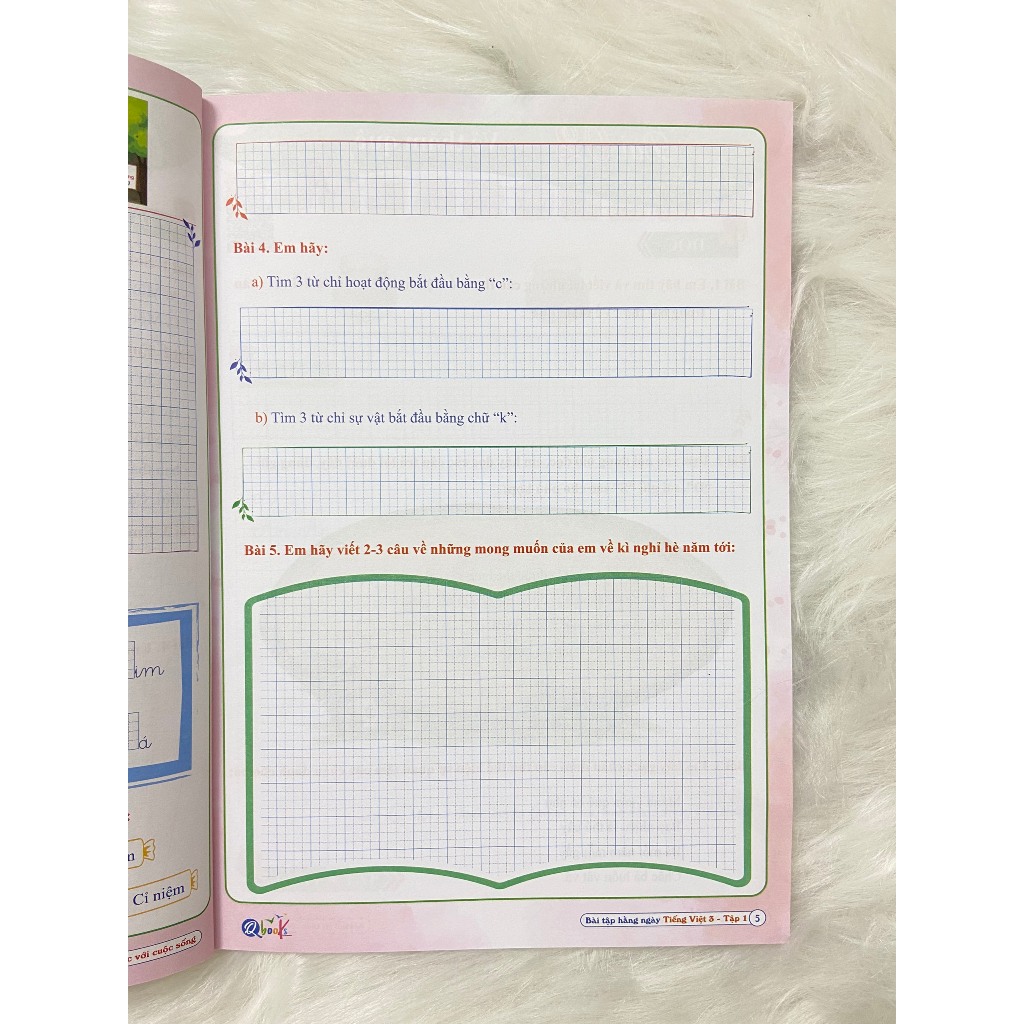 Bài 4. Em hãy:
a) Tìm 3 từ chỉ hoạt động bắt đầu bằng “c”:
b) Tìm 3 từ chỉ sự vật bắt đầu bằng chữ “k”:
Bài 5. Em hãy viết 2-3 câu về những mong muốn của em về kì nghỉ hè năm tới:
im
á
Cỉ niệm
với cuộc sống
Qbooks
Bài tập hằng ngày Tiếng Việt 3 - Tập 1 5